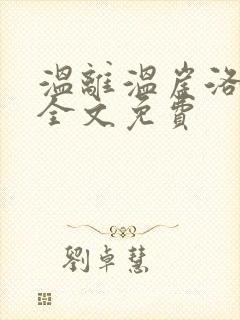 温離温崖洛
全文免費
劉卓慧